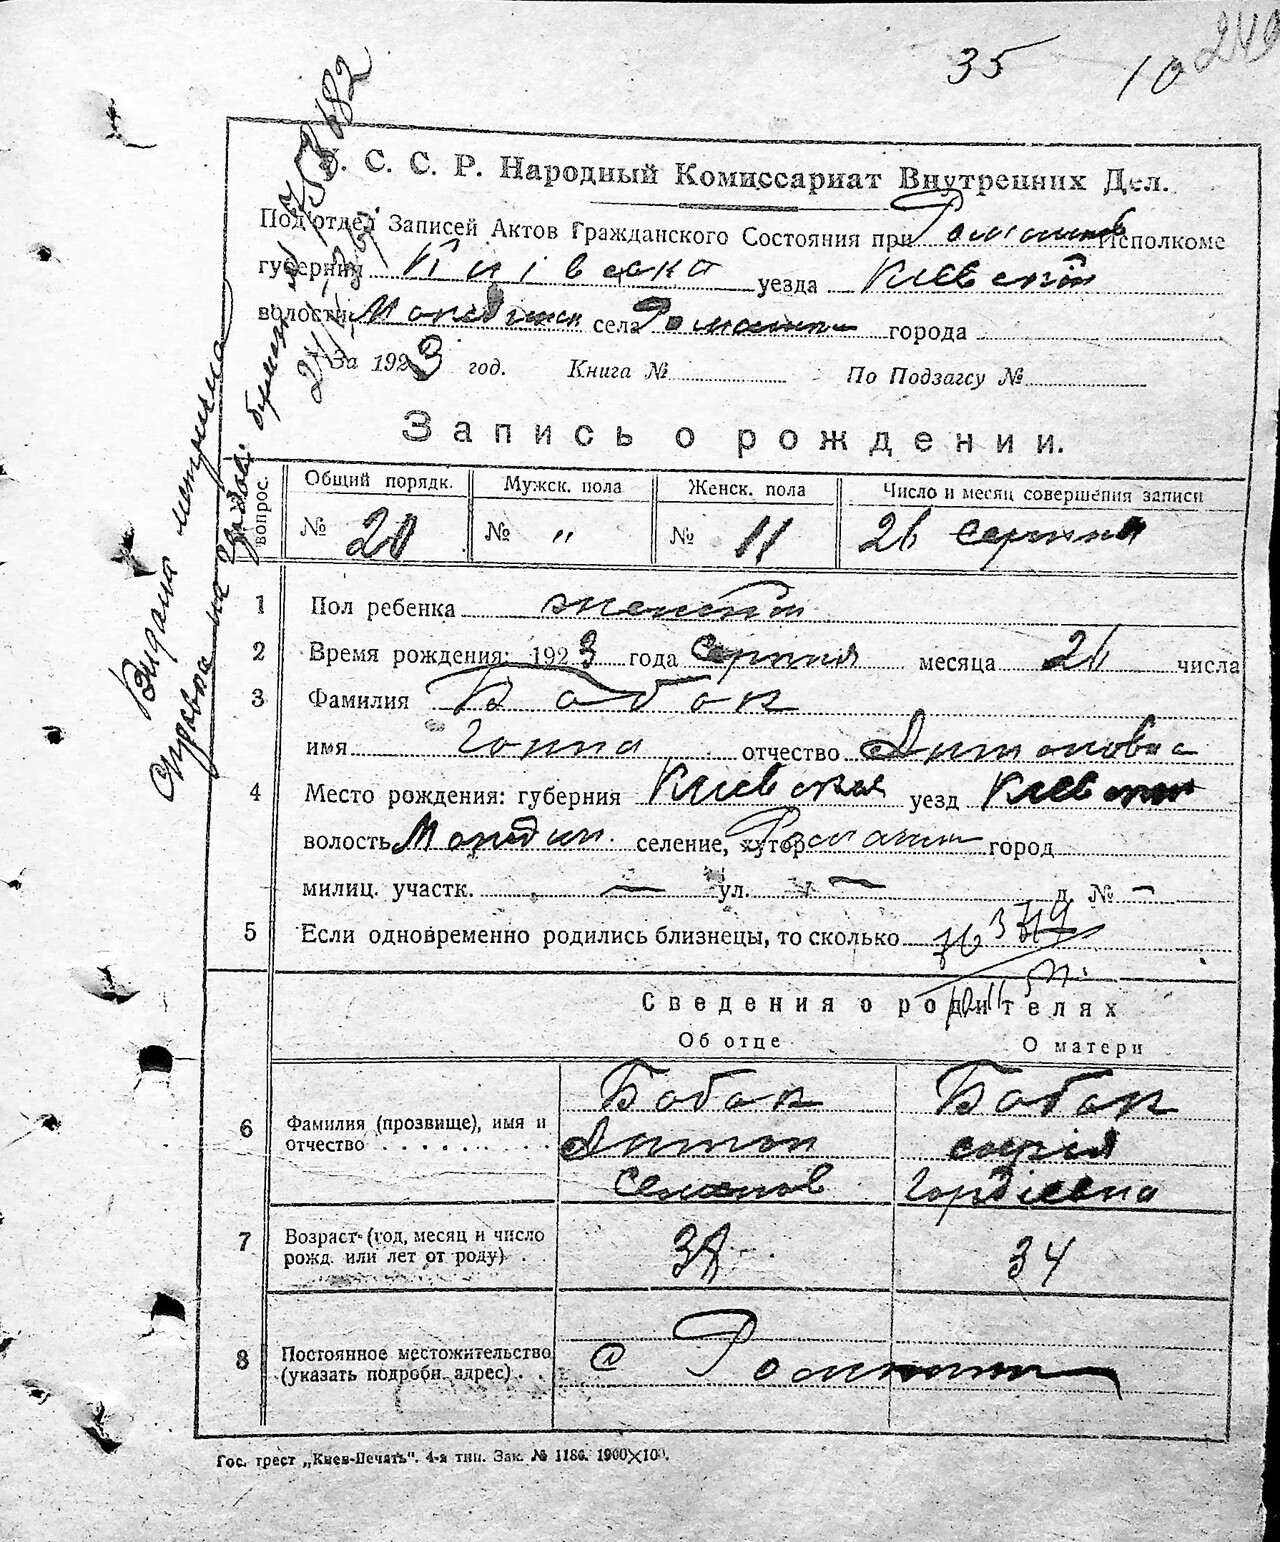 35 10 249
У. С. С. Р. Народный Комиссариат Внутренних Дел.
Под'отдел Записей Актов Гражданского Состояния при Исполкоме
губернии Київска уезда Киевский
волости села Романки города
За 1923 год. Книга № По Подзагсу №
Запись о рождении.
вопрос. Общий порядк. Мужск. пола Женск. пола Число и месяц совершения записи
№ 20 № " № 11 26 серпня
1 Пол ребенка
2 Время рождения: 1923 года Серпня месяца числа
3 Фамилия Бабак
имя Ганна отчество Антоновна
4 Место рождения: губерния Киевская уезд Киевский
волость селение, хутор Романки город
милиц. участк. — ул. — д. № —
5 Если одновременно родились близнецы, то сколько
Сведения о родителях
Об отце О матери
6 Фамилия (прозвище), имя и отчество
Бабак Бабак
Антон
Семенов Гордіевна
7 Возраст (год, месяц и число рожд. или лет от роду)
34
8 Постоянное местожительство (указать подробн. адрес)
с Романки
Гос. трест „Киев-Печать". 4-я тип. Зак. № 1186. 1900×100.
Видана метрична